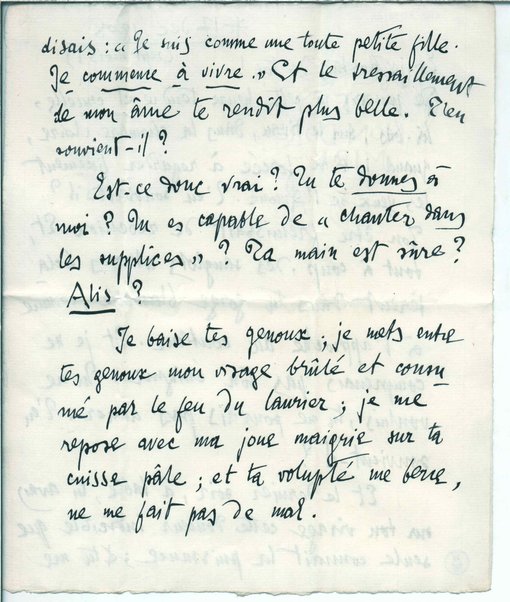 disais : « Je suis comme une toute petite fille.
Je commence à vivre. » Et le tressaillement
de mon âme te rendit plus belle. T'en
souvient-il ?
Est-ce donc vrai ? Tu te donnes à
moi ? Tu es capable de « chanter dans
les supplices » ? Ta main est sûre ?
Alis ?
Je baise tes genoux ; je mets entre
tes genoux mon visage brûlé et consu
mé par le feu du laurier ; je me
repose avec ma joue maigrie sur ta
cuisse pâle ; et ta volupté me berce,
ne me fait pas de mal.